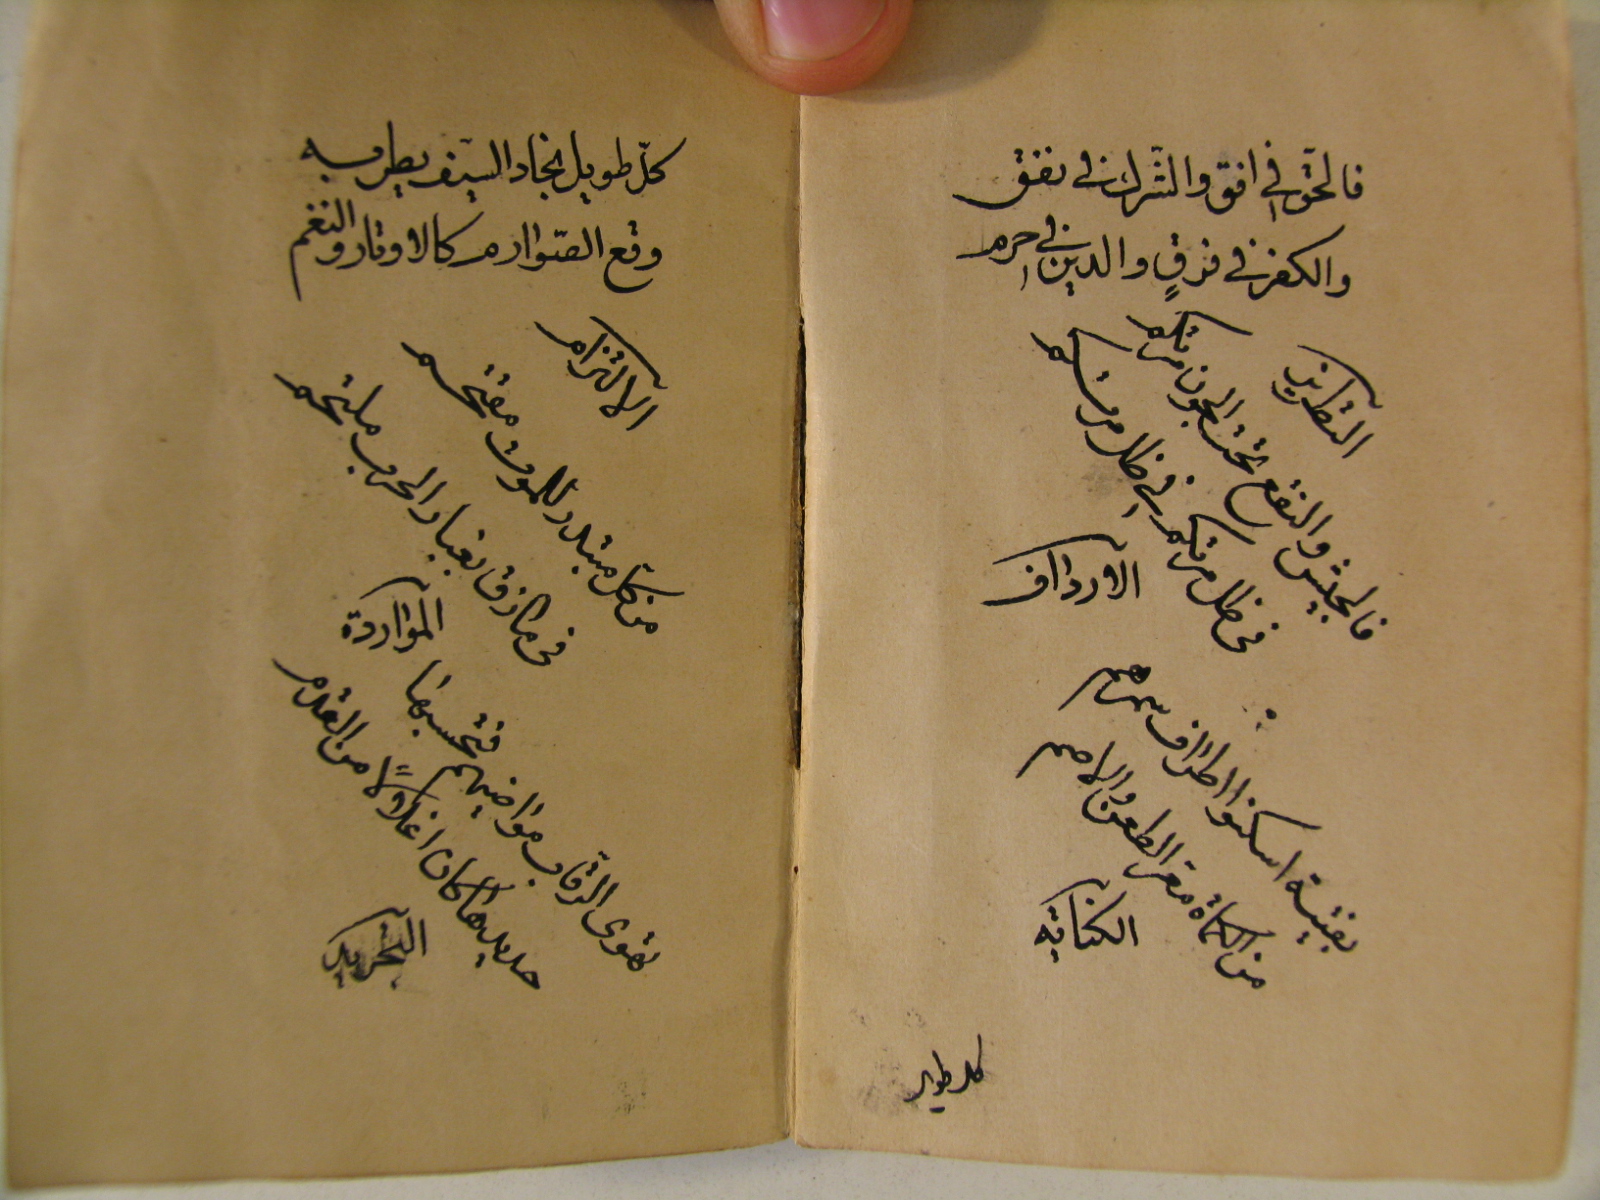 فالحق في افق والشرك في نفق
والكفر في فرق والدين في حرم
التطريز
فالجيش والنقع تحت الجون مرتكم
في ظل مرتكم في ظل مرتكم
الارداف
بفتية اسكنوا اطراف سمرهم
من الكماة مقر الطعن والاضم
الكناية
كل طويل
كل طويل نجاد السيف يطربه
وقع الصوارم كالاوتار والنغم
الالتزام
من كل مبتدر للموت مقتحم
في مازق بغبار الحرب ملتحم
المواردة
تهوى الرقاب مواضيهم فتحسبها
حديدها كان اغلالا من القدم
التجريد